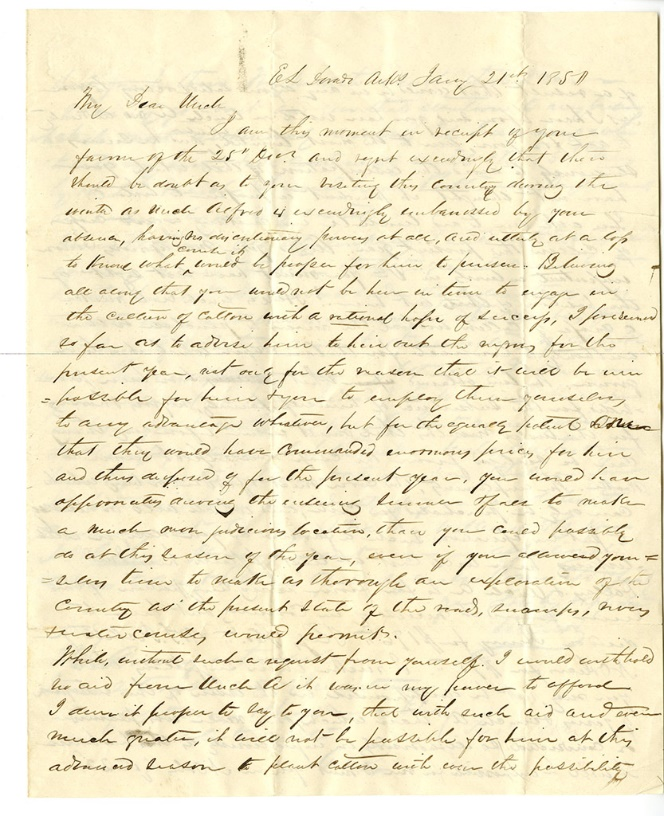 El Dorado Arks Jany 21st 1851
My Dear Uncle,
I am this moment in receipt of your
favour of the 25th Decr and regret exceedingly that there
should be doubt as to your visiting this Country during the
winter as Uncle Alfred is exceedingly embarrassed by your
absence, having no discretionary powers at all, and utterly at a loss
to know what would be proper for him to pursue. Believing
all along that you would not be here in time to engage in
the culture of Cotton with a rational hope of success, I presumed
so far as to advise him to hire out the negroes for the
present year, not only for the reason that it will be im
=possible for him & you to employ them yourselves
to any advantage whatever, but for the equally potent
that they would have commanded enormous prices for hire
and thus disposed of for the present year, you would have
opportunities during the ensuing Summer & fall to make
a much more judicious location, than you could possibly
do at this season of the year, even if you allowed your=
=selves time to make as thorough an exploration of the
Country as the present state of the roads, swamps, rivers
& water courses, would permit.
While, without such a request from yourself. I would withhold
no aid from Uncle A it was in my power to afford
I deem it proper to say to you, that with such aid and even
much greater, it will not be possible for him at this
advanced season to plant cotton with even the possibility